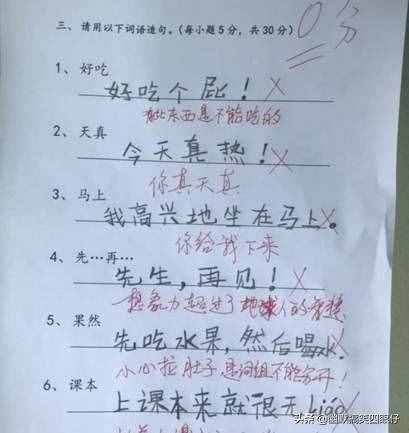 三、请用以下词语造句。(每小题5分，共30分)
0分
1、好吃
好吃个屁！
有些东西是不能吃的
2、天真
今天真热！
你真天真
3、马上
我高兴地坐在马上。
你给我下来
4、先…再…
先生，再见！
想象力超过了地球人的
5、果然
先吃水果，然后喝水。
小心拉肚子 是词组不能分开！
6、课本
上课本来就很无
头条@幽默搞笑四眼仔